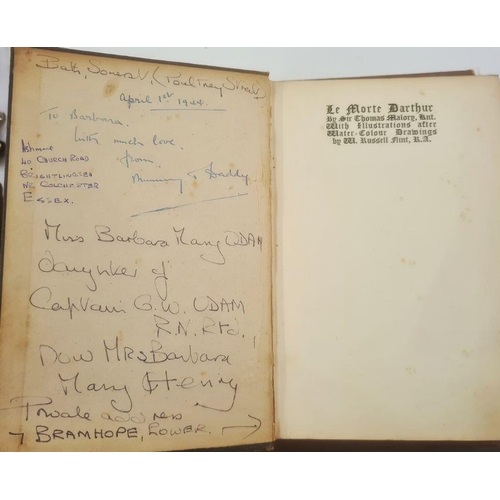 Bath, Somerset, (Poultney Street)
April 1st 1944.
To Barbara.
With much love.
from
Mummy & Daddy.
40 CHURCH ROAD
BRIGHTLINGSEA
NR COLCHESTER
ESSEX.
Miss Barbara Mary UDAM
daughter of
Captain G.W. UDAM
R.N. Rtd.,
Now MRS Barbara
Mary Henry
Private address
→ BRAMHOPE, LOWER. →
Le Morte Darthur
By Sir Thomas Malory, Knt.
With Illustrations after
Water-Colour Drawings
by W. Russell Flint, R.A.